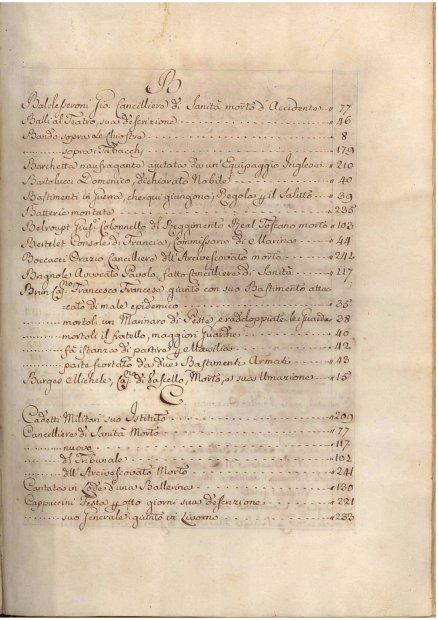 B
Baldesseroni Gio. Cancelliere di Sanità morto d'Accidente 77
Balli al Teatro, sua descrizione 46
Bando sopra Le 8
sopra i Tabacchi 179
Barchetta naufragante ajutata da un' Equipaggio Inglese 210
Bartolucci Domenico, dichiarato Nobile 40
Bastimenti in guerra, che qui giungono, Regola p il Saluto 39
Batterie montate 235
Belroupt Colonnello del Reggimento Real Toscano morto 103
Bertelet Console di Francia, Commissario di Marina 44
Boccacci Orazio Cancelliere dll' Arcivescovato morto 241
Brignole Avvocato Paolo, fatto Cancelliere di Sanità 117
Brun Francesco Francese, giunto con suo Bastimento attac
cato di male epidemico 35
mortoli un Marinaro di Peste e raddoppiate le Guardie 38
mortoli il fratello, maggiori Guardie 40
fà istanza di partire p Marsilia 42
parte scortato da due Bastimenti Armati 43
Burges Michele, Cap. di Vascello, Morto, e sua Umazione 15
C
Cadetti Militari suo Istituto 209
Cancelliere di Sanità Morto 77
nuovo 117
del Tribunale 102
dll' Arcivescovato Morto 241
Cantata in Lode d'una Ballerina 130
Cappuccini Festa p otto giorni sua descrizione 221
suo Generale giunto in Livorno 233